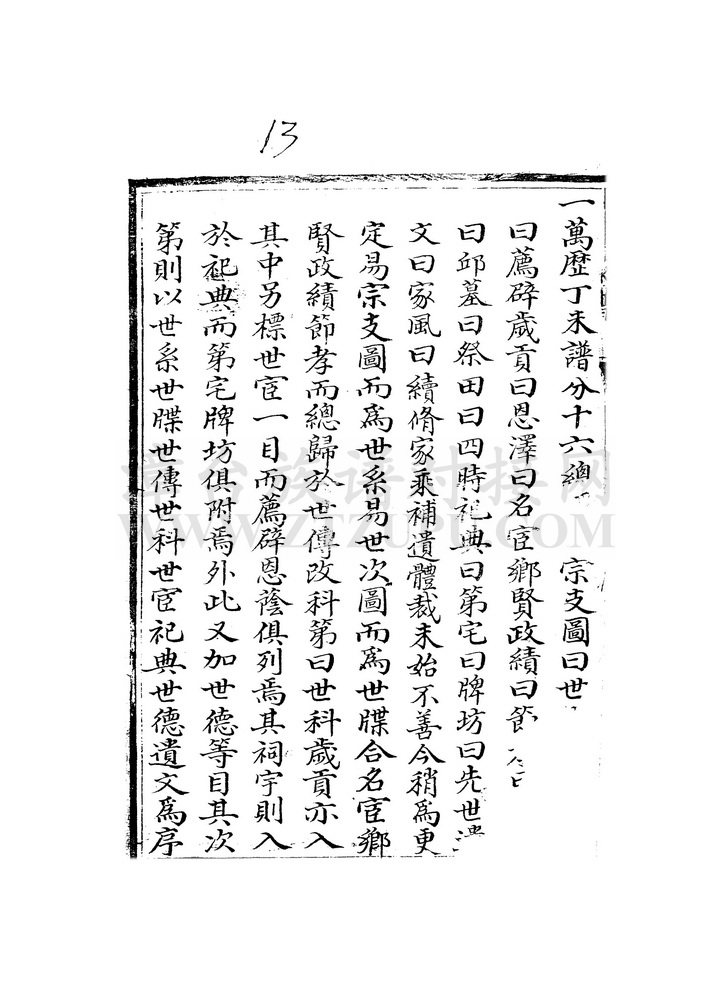 13
一萬歷丁未譜分十六總 宗支圖曰世
曰薦辟歲貢曰恩澤曰名宦鄉賢政績曰節
曰邱墓曰祭田曰四時祀典曰第宅曰牌坊曰先世遺
文曰家風曰續脩家乘補遺體裁未始不善今稍為更
定易宗支圖而為世系易世次圖而為世牒合名宦鄉
賢政績節孝而總歸於世傳改科第曰世科歲貢亦入
其中另標世宦一目而薦辟恩蔭俱列焉其祠宇則入
於祀典而第宅牌坊俱附焉外此又加世德等目其次
第則以世系世牒世傳世科世宦祀典世德遺文為序
WWW.ZTZUPU.COM